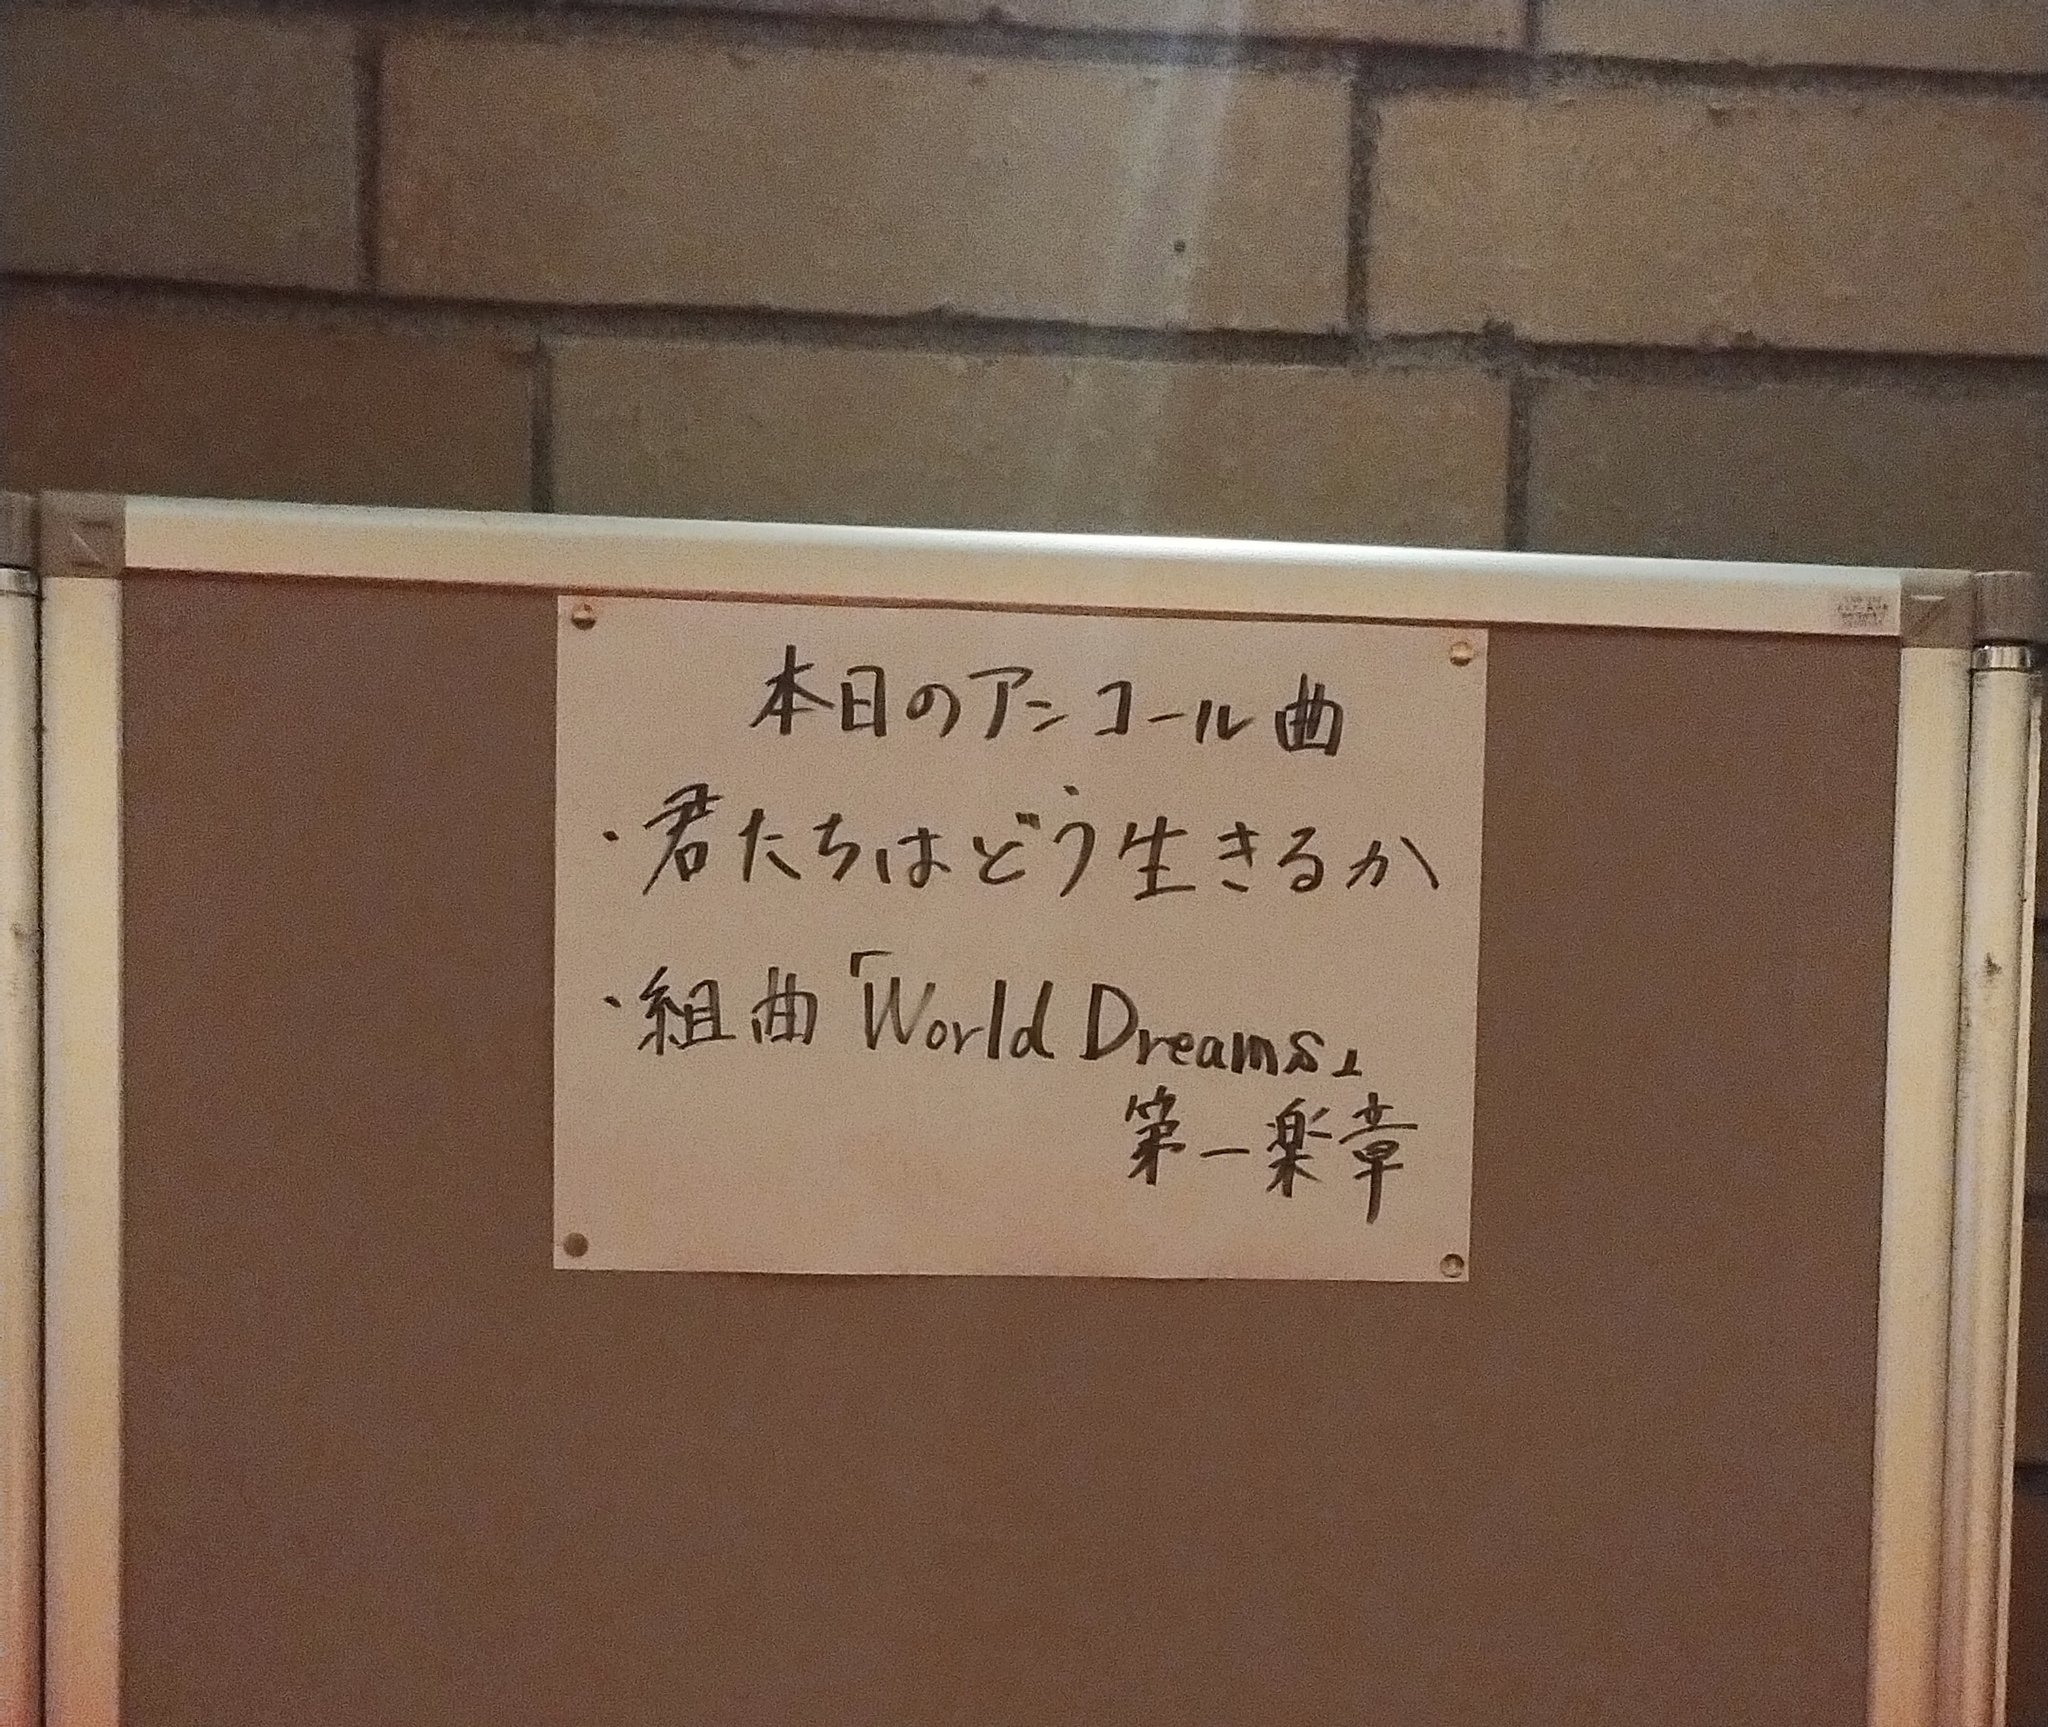 本日のアンコール曲
・君たちはどう生きるか
・組曲「World Dreams」
第一楽章